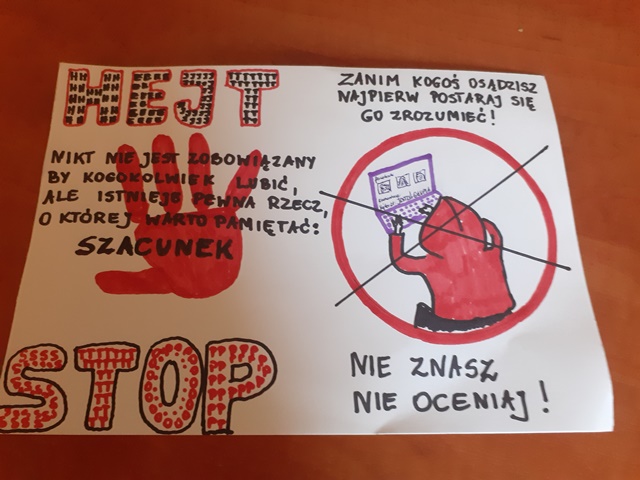 HEJT
NIKT NIE JEST ZOBOWIĄZANY
BY KOGOKOLWIEK LUBIĆ,
ALE ISTNIEJE PEWNA RZECZ,
O KTÓREJ WARTO PAMIĘTAĆ:
SZACUNEK
STOP
ZANIM KOGOŚ OSĄDZISZ
NAJPIERW POSTARAJ SIĘ
GO ZROZUMIEĆ!
NIE ZNASZ
NIE OCENIAJ!